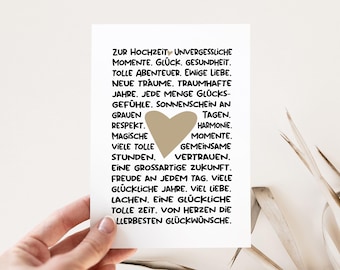 ZUR HOCHZEIT UNVERGESSLICHE
MOMENTE. GLÜCK. GESUNDHEIT.
TOLLE ABENTEUER. EWIGE LIEBE.
NEUE TRÄUME. TRAUMHAFTE
JAHRE. JEDE MENGE GLÜCKS-
GEFÜHLE. SONNENSCHEIN AN
GRAUEN TAGEN.
RESPEKT. HARMONIE.
MAGISCHE MOMENTE.
VIELE TOLLE GEMEINSAME
STUNDEN. VERTRAUEN.
EINE GROSSARTIGE ZUKUNFT.
FREUDE AN JEDEM TAG. VIELE
GLÜCKLICHE JAHRE. VIEL LIEBE.
LACHEN. EINE GLÜCKLICHE
TOLLE ZEIT. VON HERZEN DIE
ALLERBESTEN GLÜCKWÜNSCHE.